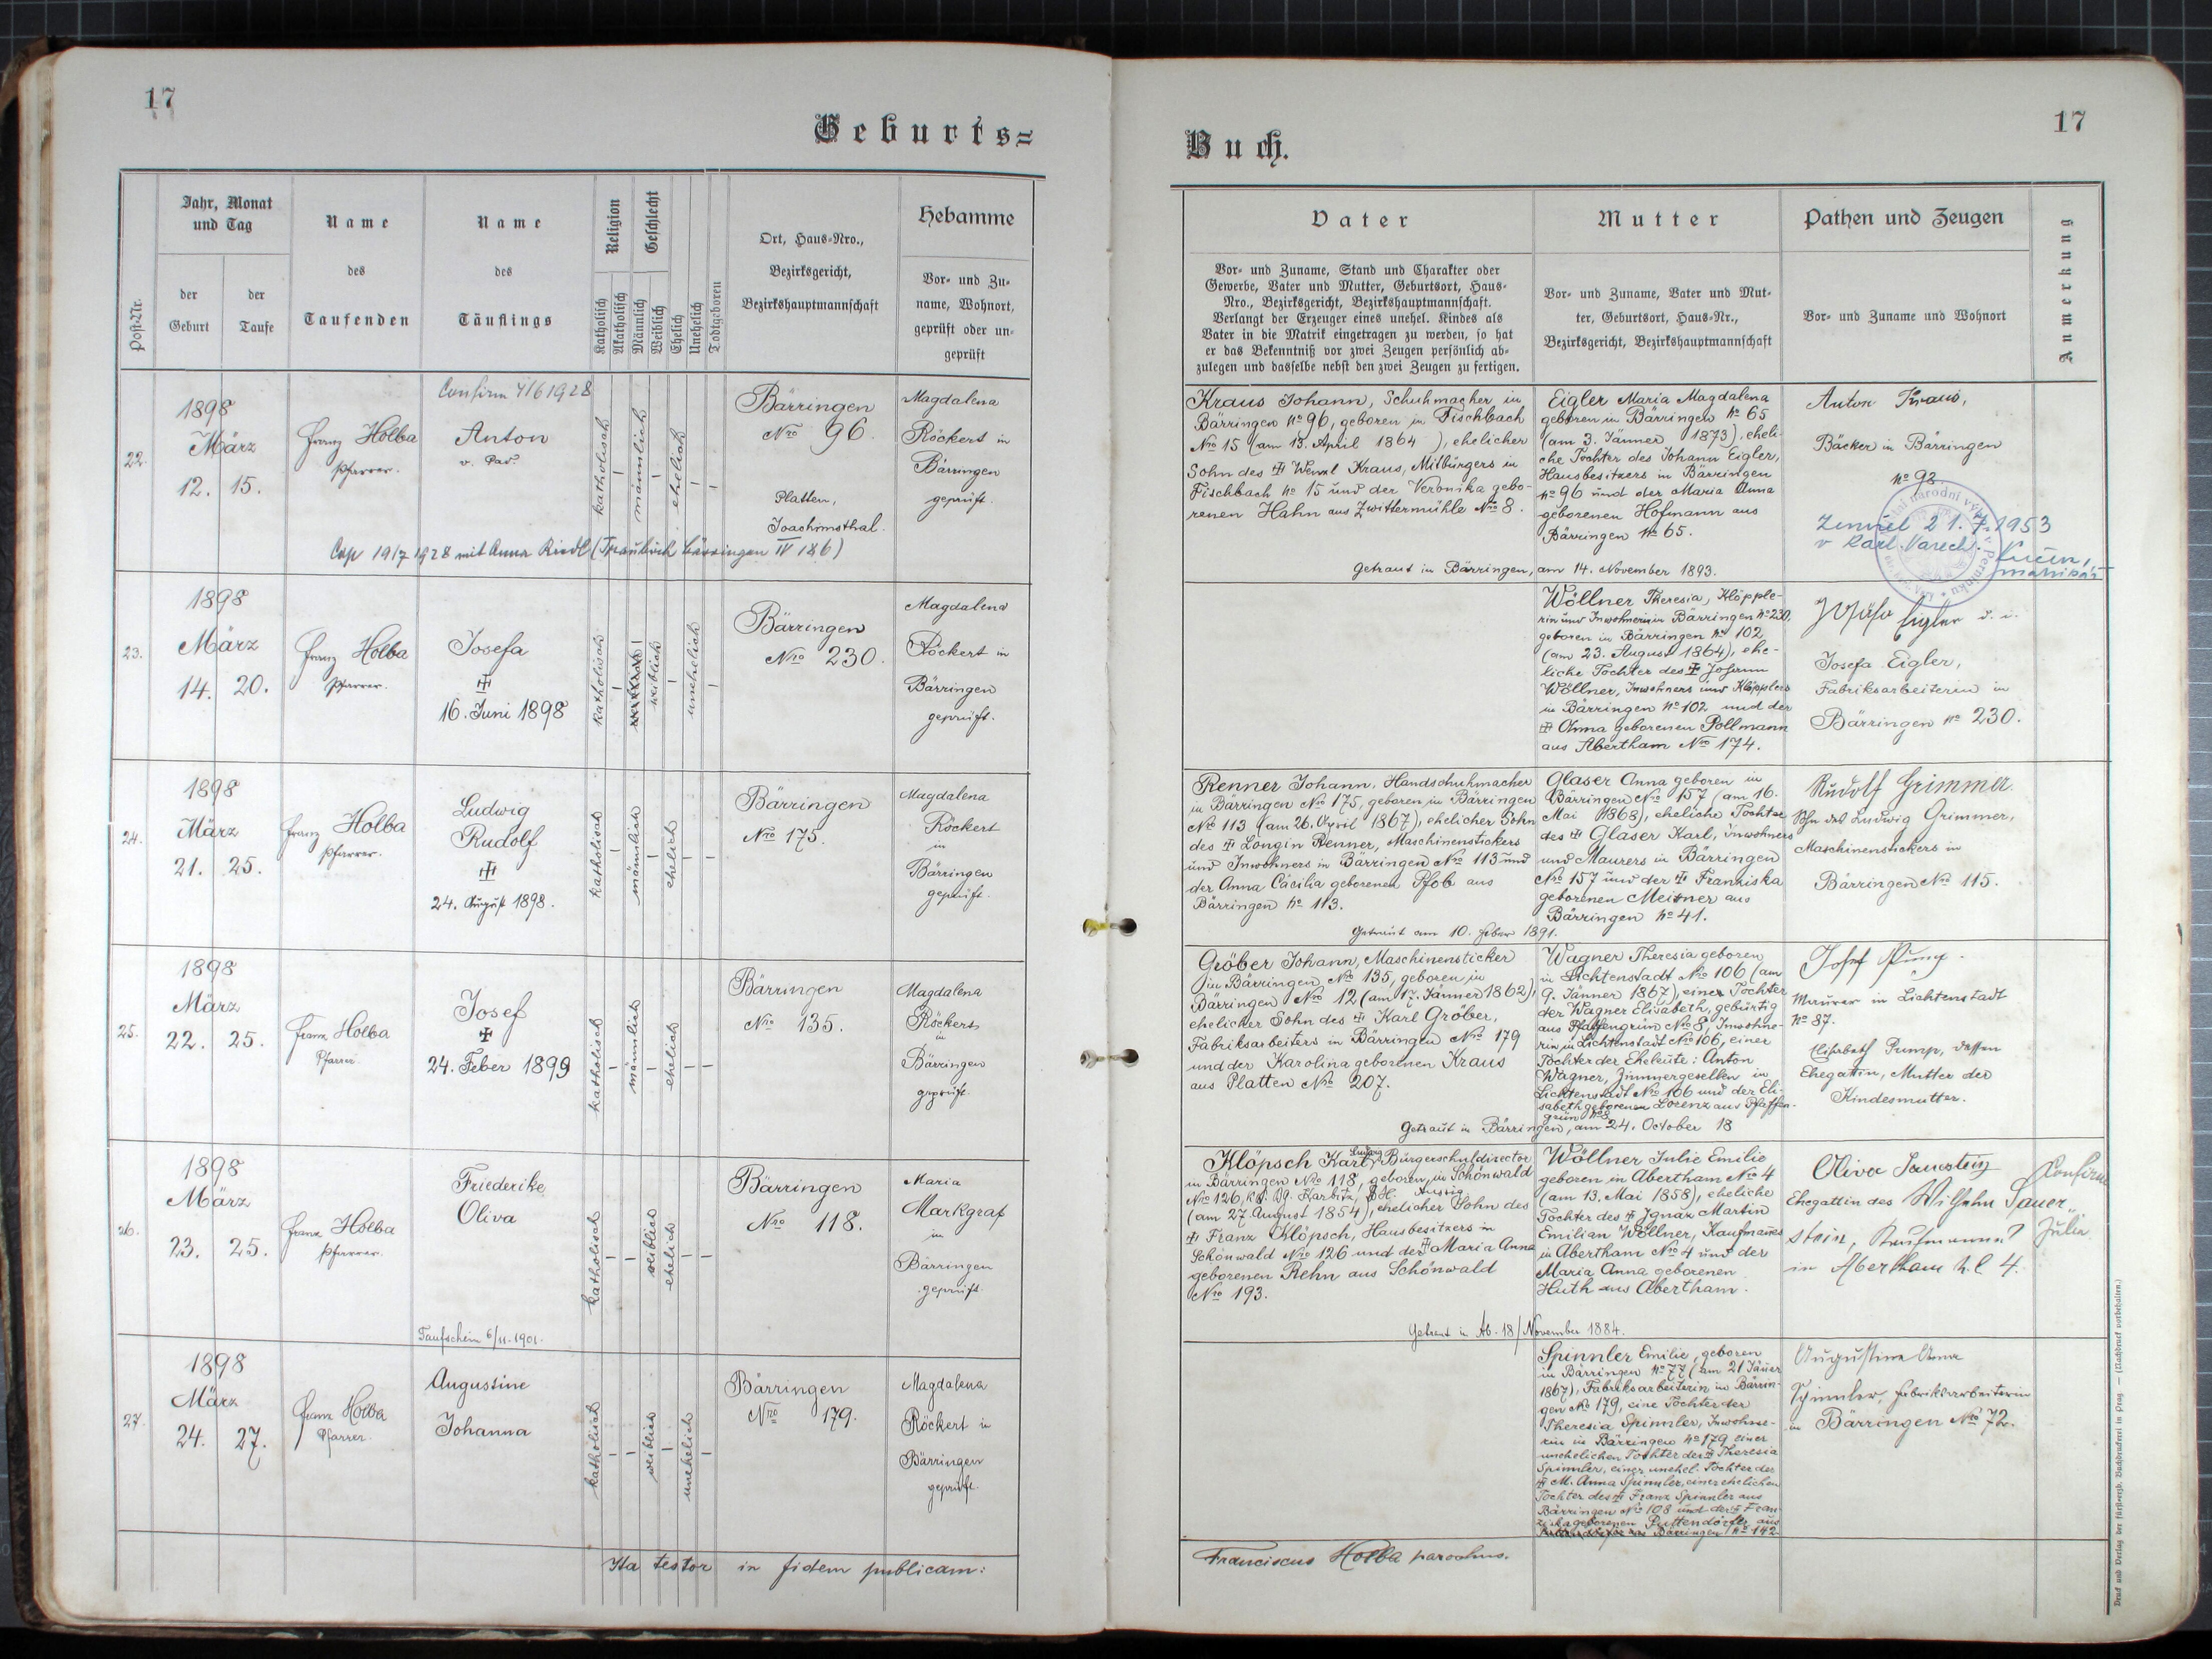 17
Geburts=
Post-Nr.
Jahr, Monat
und Tag
der
Geburt
der
Taufe
Name
des
Taufenden
Name
des
Täuflings
Religion
Katholisch
Akatholisch
Geschlecht
Männlich
Weiblich
Ehelich
Unehelich
Todtgeboren
Ort, Haus-Nro.,
Bezirksgericht,
Bezirkshauptmannschaft
Hebamme
Vor- und Zu-
name, Wohnort,
geprüft oder un-
geprüft
22.
1898
März
12. 15.
Franz Holba
Pfarrer.
Confirm 4/6 1928
Anton
v. Pad.
katholisch
männlich
ehelich
Bärringen
Nro 96.
Platten,
Joachimsthal.
Magdalena
Röckert in
Bärringen
geprüft.
Cop 19/7 1928 mit Anna Riedl (Traubuch Bärringen IV 186)
23.
1898
März
14. 20.
Franz Holba
Pfarrer.
Josefa
16. Juni 1898
katholisch
weiblich
unehelich
Bärringen
Nro 230.
Magdalena
Röckert in
Bärringen
geprüft.
24.
1898
März
21. 25.
Franz Holba
Pfarrer.
Ludwig
Rudolf
24. August 1898.
katholisch
männlich
ehelich
Bärringen
Nro 175.
Magdalena
Röckert
in
Bärringen
geprüft.
25.
1898
März
22. 25.
Franz Holba
Pfarrer.
Josef
24. Feber 1899
katholisch
männlich
ehelich
Bärringen
Nro 135.
Magdalena
Röckert
in
Bärringen
geprüft.
26.
1898
März
23. 25.
Franz Holba
Pfarrer.
Friederike
Oliva
Taufschein 6/11. 1901.
katholisch
weiblich
ehelich
Bärringen
Nro 118.
Maria
Markgraf
in
Bärringen
geprüft.
27.
1898
März
24. 27.
Franz Holba
Pfarrer.
Augustine
Johanna
katholisch
weiblich
unehelich
Bärringen
Nro 179.
Magdalena
Röckert in
Bärringen
geprüft.
Ita testor in fidem publicam:
17
Buch.
Vater
Vor- und Zuname, Stand und Charakter oder
Gewerbe, Vater und Mutter, Geburtsort, Haus-
Nro., Bezirksgericht, Bezirkshauptmannschaft.
Verlangt der Erzeuger eines unehel. Kindes als
Vater in die Matrik eingetragen zu werden, so hat
er das Bekenntniß vor zwei Zeugen persönlich ab-
zulegen und dasselbe nebst den zwei Zeugen zu fertigen.
Mutter
Vor- und Zuname, Vater und Mut-
ter, Geburtsort, Haus-Nr.,
Bezirksgericht, Bezirkshauptmannschaft
Pathen und Zeugen
Vor- und Zuname und Wohnort
Anmerkung
Kraus Johann, Schuhmacher in
Bärringen No 96, geboren in Fischbach
No 15 (am 13. April 1864 ), ehelicher
Sohn des Wenzl Kraus, Mitbürgers in
Fischbach No 15 und der Veronika gebo-
renen Hahn aus Zwittermühle No 8.
Eigler Maria Magdalena
geboren in Bärringen No 65
(am 3. Jänner 1873), eheli-
che Tochter des Johann Eigler,
Hausbesitzers in Bärringen
No 96 und der Maria Anna
geborenen Hofmann aus
Bärringen No 65.
Getraut in Bärringen, am 14. November 1893.
Anton Kraus,
Bäcker in Bärringen
No 92.
Zemřel 21. 7. 1953
v Karl. Varech.
Wöllner Theresia, Klöpple-
rin und Inwohnerin in Bärringen No 230,
geboren in Bärringen No 102
(am 23. August 1864), ehe-
liche Tochter des Johann
Wöllner, Inwohners und Klöpplers
in Bärringen No 102 und der
Anna geborenen Pollmann
aus Abertham No 174.
Josefa Eigler d. i.
Josefa Eigler,
Fabriksarbeiterin in
Bärringen No 230.
Renner Johann, Handschuhmacher
in Bärringen No 175, geboren in Bärringen
No 113 (am 26. April 1867), ehelicher Sohn
des Longin Renner, Maschinenstickers
und Inwohners in Bärringen No 113 und
der Anna Cäcilia geborenen Pfob aus
Bärringen No 113.
Glaser Anna geboren in
Bärringen No 157 (am 16.
Mai 1868), eheliche Tochter
des Glaser Karl, Inwohners
und Maurers in Bärringen
No 157 und der Franziska
geborenen Meixner aus
Bärringen No 41.
Getraut am 10. Feber 1891.
Rudolf Grimmer
Sohn des Ludwig Grimmer,
Maschinenstickers in
Bärringen No 115.
Gröber Johann, Maschinensticker
in Bärringen No 135, geboren in
Bärringen No 12 (am 17. Jänner 1862),
ehelicher Sohn des Karl Gröber,
Fabriksarbeiters in Bärringen No 179
und der Karolina geborenen Kraus
aus Platten No 207.
Wagner Theresia geboren
in Lichtenstadt No 106 (am
9. Jänner 1867), einer Tochter
der Wagner Elisabeth, gebürtig
aus Pfaffengrün No 8, Inwohne-
rin in Lichtenstadt No 106, einer
Tochter der Eheleute: Anton
Wagner, Zimmergesellen in
Lichtenstadt No 106 und der Eli-
sabeth geborenen Lorenz aus Pfaffen-
grün No 8.
Getraut in Bärringen, am 24. October 18
Josef Pump.
Maurer in Lichtenstadt
No 87.
Elisabeth Pump, dessen
Ehegattin, Mutter der
Kindesmutter.
Klöpsch Karl Ludwig, Bürgerschuldirector
in Bärringen No 118, geboren in Schönwald
No 126, Bg. Karbitz, BH. Aussig
(am 27. August 1854), ehelicher Sohn des
Franz Klöpsch, Hausbesitzers in
Schönwald No 126 und der Maria Anna
geborenen Rehn aus Schönwald
No 193.
Wöllner Julie Emilie
geboren in Abertham No 4
(am 13. Mai 1858), eheliche
Tochter des Ignaz Martin
Emilian Wöllner, Kaufmanns
in Abertham No 4 und der
Maria Anna geborenen
Huth aus Abertham.
Getraut in Ab. 18/November 1884.
Oliva Sauerstein
Ehegattin des Wilhelm Sauer-
stein, Kaufmanns
in Abertham No 4.
Confirm
Julia
Spinnler Emilie, geboren
in Bärringen No 77 (am 21 Jänner
1867), Fabriksarbeiterin in Bärrin-
gen No 179, eine Tochter der
Theresia Spinnler, Inwohne-
rin in Bärringen No 179 einer
unehelichen Tochter der Theresia
Spinnler, einer unehel. Tochter der
M. Anna Spinnler, einer ehelichen
Tochter des Franz Spinnler aus
Bärringen No 108 und der Fran-
ziska geborenen Puttendörfer aus
Bärringen No 142.
Augustine Anna
Spinnler, Fabriksarbeiterin
in Bärringen No 72.
Franciscus Holba parochus.
Druck und Verlag der fürsterzb. Buchdruckerei in Prag. — (Nachdruck vorbehalten.)